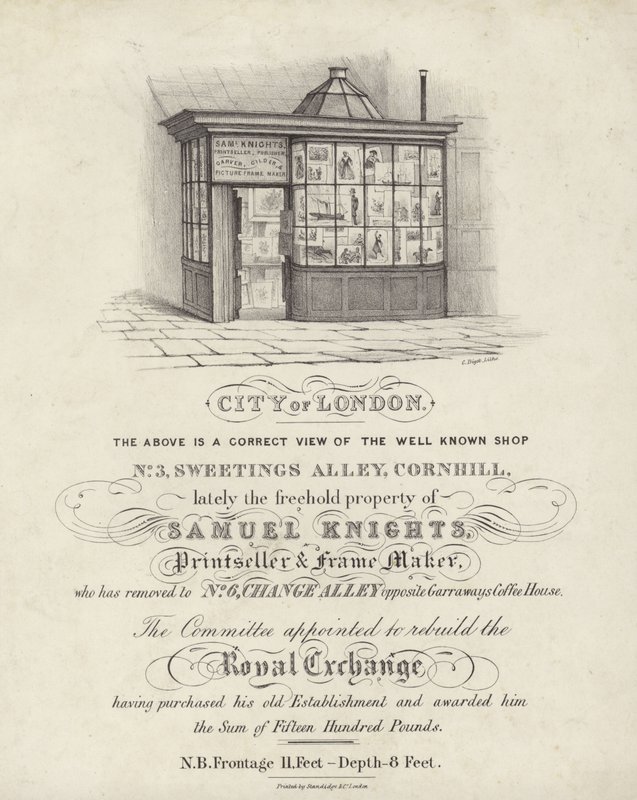 SAML. KNIGHTS.
PRINTSELLER, PUBLISHER,
CARVER, GILDER, &
PICTURE FRAME MAKER
CITY OF LONDON.
THE ABOVE IS A CORRECT VIEW OF THE WELL KNOWN SHOP
No. 3, SWEETINGS ALLEY, CORNHILL,
lately the freehold property of
SAMUEL KNIGHTS,
Printseller & Frame Maker,
who has removed to No. 6, CHANGE ALLEY opposite Garraways Coffee House.
The Committee appointed to rebuild the
Royal Exchange
having purchased his old Establishment and awarded him
the Sum of Fifteen Hundred Pounds.
N.B. Frontage 11, Feet – Depth – 8 Feet.
Printed by Standidge & Co. London